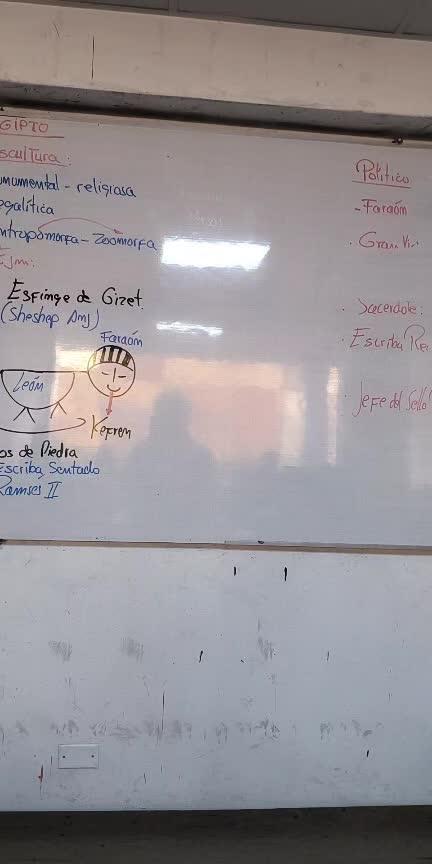 GIPTO
scultura:
numental - religiosa
egalítica
ntropomorfa - Zoomorfa
Ejm:
Esfinge de Gizet.
(Sheshep Anj)
Faraóm
León
Kefrem
os de Piedra
Escriba Sentado
Ramsés II
Político
- Faraóm
. Gran Vi
. Sacerdote:
. Escriba Re
. Jefe del Sello